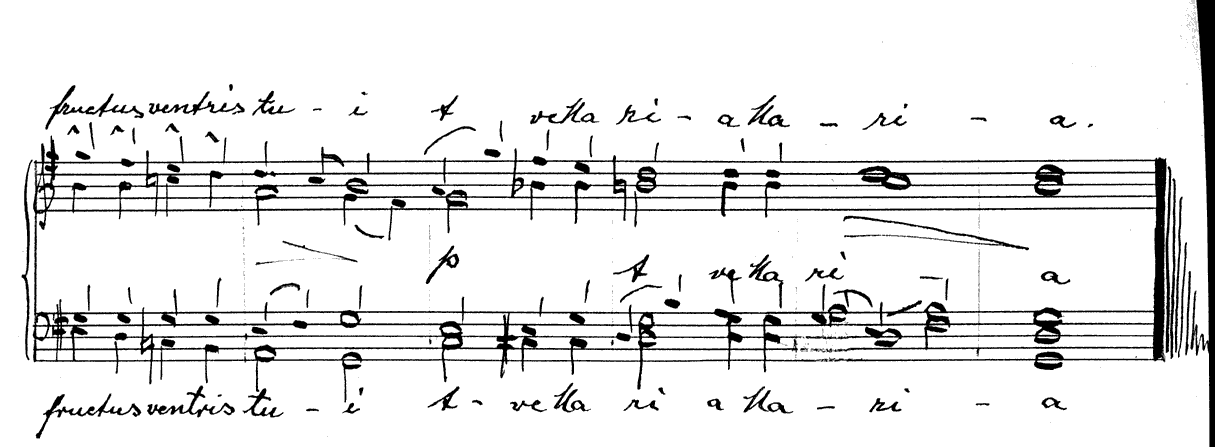 fructus ventris tu - i A ve Ma ri - a Ma - ri - a.
p
A ve Ma ri - a
fructus ventris tu - i A - ve Ma ri a Ma - ri - a